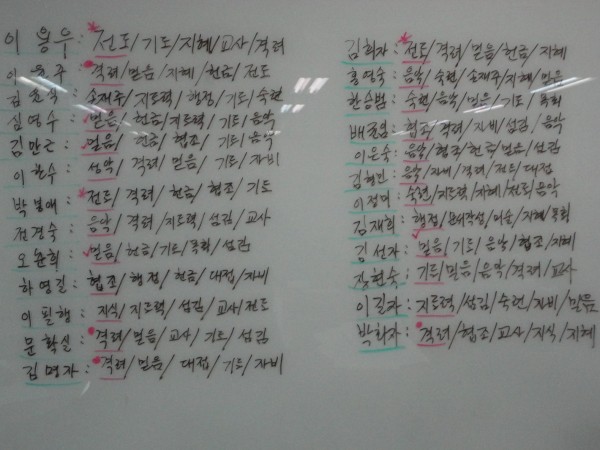 이용우: 전도/기도/지혜/교사/격려
이윤주: 격려/믿음/지혜/헌금/전도
김윤식: 손재주/지도력/행정/기도/숙련
심영수: 믿음/헌금/지도력/기도/음악
김만근: 믿음/헌금/협조/기도/음악
이한수: 선악/격려/믿음/기도/자비
박봉애: 전도/격려/헌금/협조/기도
전경숙: 음악/격려/지도력/섬김/교사
오윤희: 믿음/헌금/기도/목회/섬김
하영길: 협조/행정/헌금/대접/자비
이필행: 지식/지도력/섬김/교사/전도
문학실: 격려/믿음/교사/기도/섬김
김명자: 격려/믿음/대접/기도/자비
김희자: 전도/격려/믿음/헌금/지혜
홍영숙: 음악/숙련/손재주/지혜/믿음
한승범: 숙련/음악/믿음/기도/목회
배: 협조/격려/자비/섬김/음악
이은숙: 음악/협조/헌금/믿음/섬김
김형민: 음악/자비/격려/전도/대접
이정미: 숙련/지도력/지혜/전도/음악
김재희: 행정/문서작성/미술/지혜/목회
김선자: 믿음/기도/음악/협조/지혜
장현숙: 기도/믿음/음악/격려/교사
이길자: 지도력/섬김/숙련/자비/믿음
박화자: 격려/협조/교사/지식/지혜